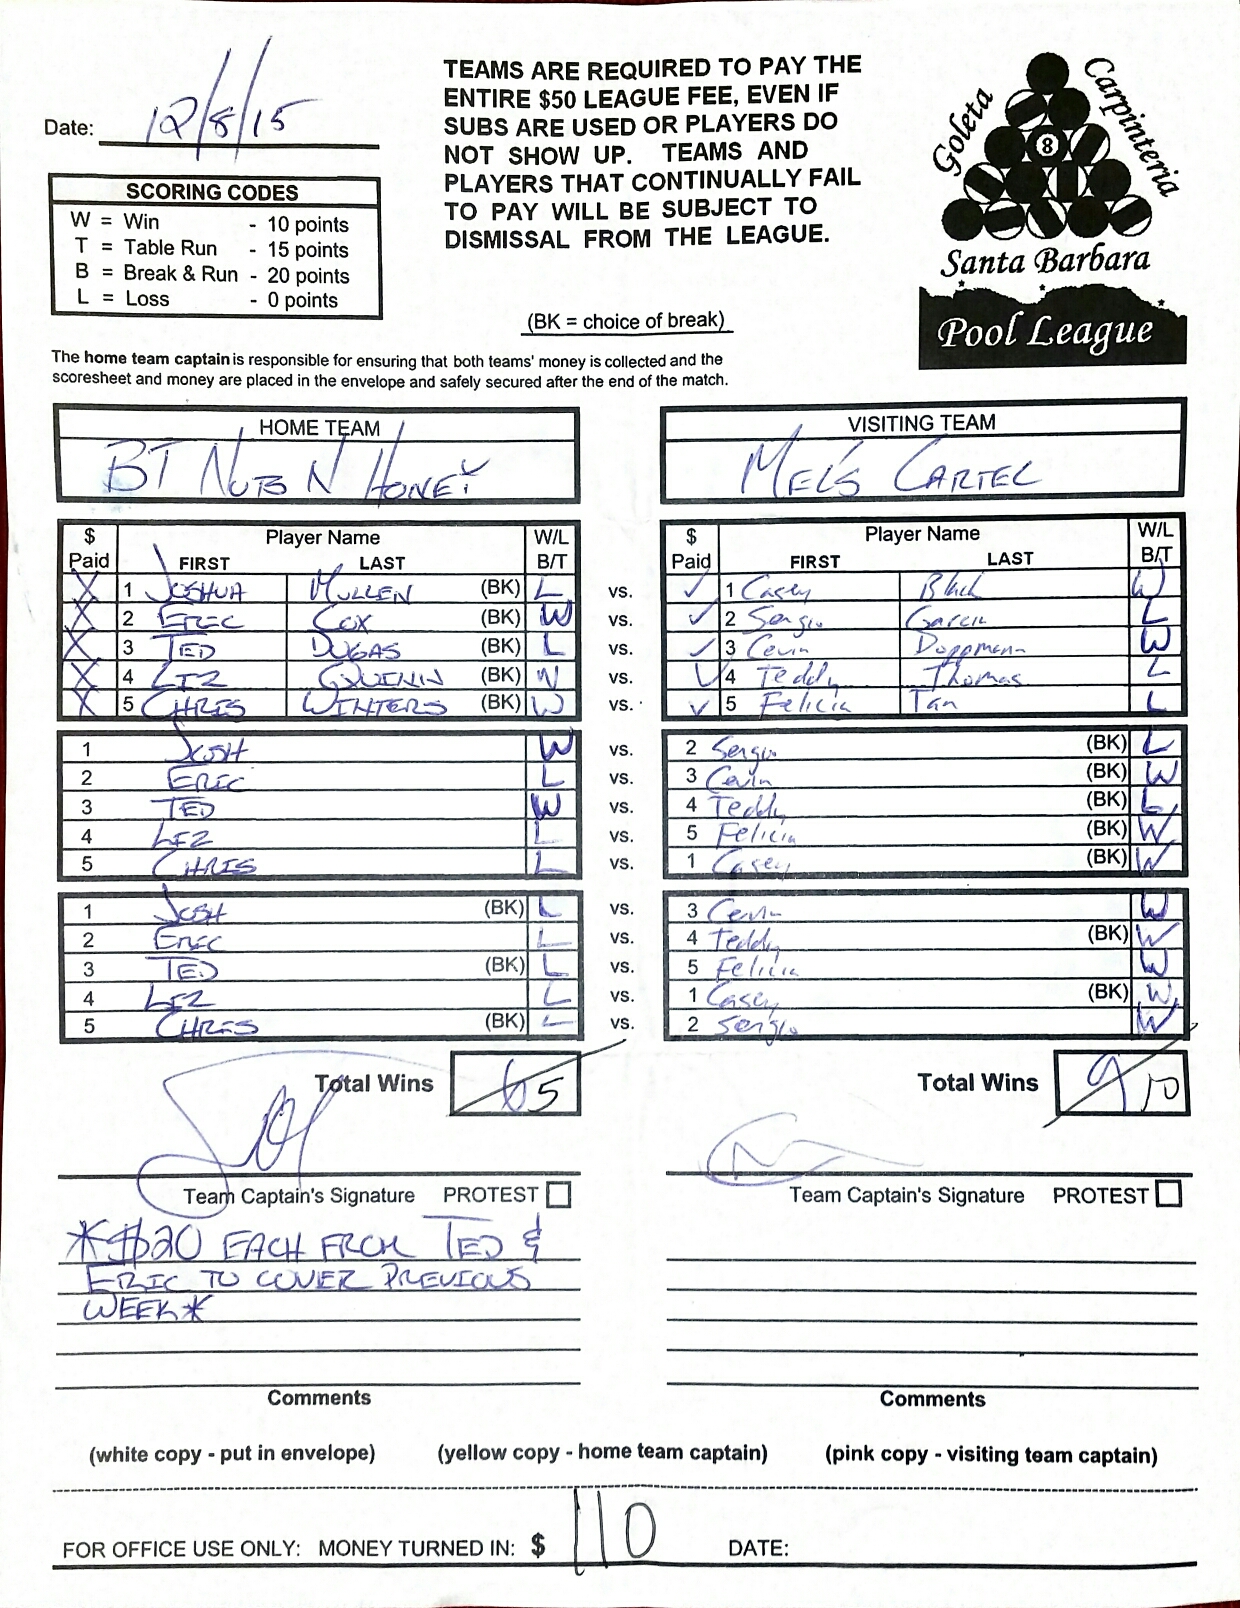 Date: 12/8/15
TEAMS ARE REQUIRED TO PAY THE
ENTIRE $50 LEAGUE FEE, EVEN IF
SUBS ARE USED OR PLAYERS DO
NOT SHOW UP. TEAMS AND
PLAYERS THAT CONTINUALLY FAIL
TO PAY WILL BE SUBJECT TO
DISMISSAL FROM THE LEAGUE.
Goleta
Carpinteria
8
Santa Barbara
Pool League
SCORING CODES
W = Win - 10 points
T = Table Run - 15 points
B = Break & Run - 20 points
L = Loss - 0 points
(BK = choice of break)
The home team captain is responsible for ensuring that both teams' money is collected and the
scoresheet and money are placed in the envelope and safely secured after the end of the match.
HOME TEAM
BT NUTS N HONEY
VISITING TEAM
MEL'S CARTEL
$ Player Name W/L
Paid FIRST LAST B/T
$ Player Name W/L
Paid FIRST LAST B/T
X 1 JOSHUA MULLEN (BK) L vs. ✓ 1 Casey Black W
X 2 ERIC COX (BK) W vs. ✓ 2 Sergio Garcia L
X 3 TED DUGAS (BK) L vs. ✓ 3 Cevin Doppmann W
X 4 LIZ QUINN (BK) W vs. ✓ 4 Teddy Thomas L
X 5 CHRIS WINTERS (BK) W vs. ✓ 5 Felicia Tan L
1 JOSH W vs. 2 Sergio (BK) L
2 ERIC L vs. 3 Cevin (BK) W
3 TED W vs. 4 Teddy (BK) L
4 LIZ L vs. 5 Felicia (BK) W
5 CHRIS L vs. 1 Casey (BK) W
1 JOSH (BK) L vs. 3 Cevin W
2 ERIC L vs. 4 Teddy (BK) W
3 TED (BK) L vs. 5 Felicia W
4 LIZ L vs. 1 Casey (BK) W
5 CHRIS (BK) L vs. 2 Sergio W
Total Wins 6 5
Total Wins 9 10
Team Captain's Signature PROTEST
Team Captain's Signature PROTEST
*$20 EACH FROM TED &
ERIC TO COVER PREVIOUS
WEEK*
Comments
Comments
(white copy - put in envelope) (yellow copy - home team captain) (pink copy - visiting team captain)
FOR OFFICE USE ONLY: MONEY TURNED IN: $ 110 DATE: